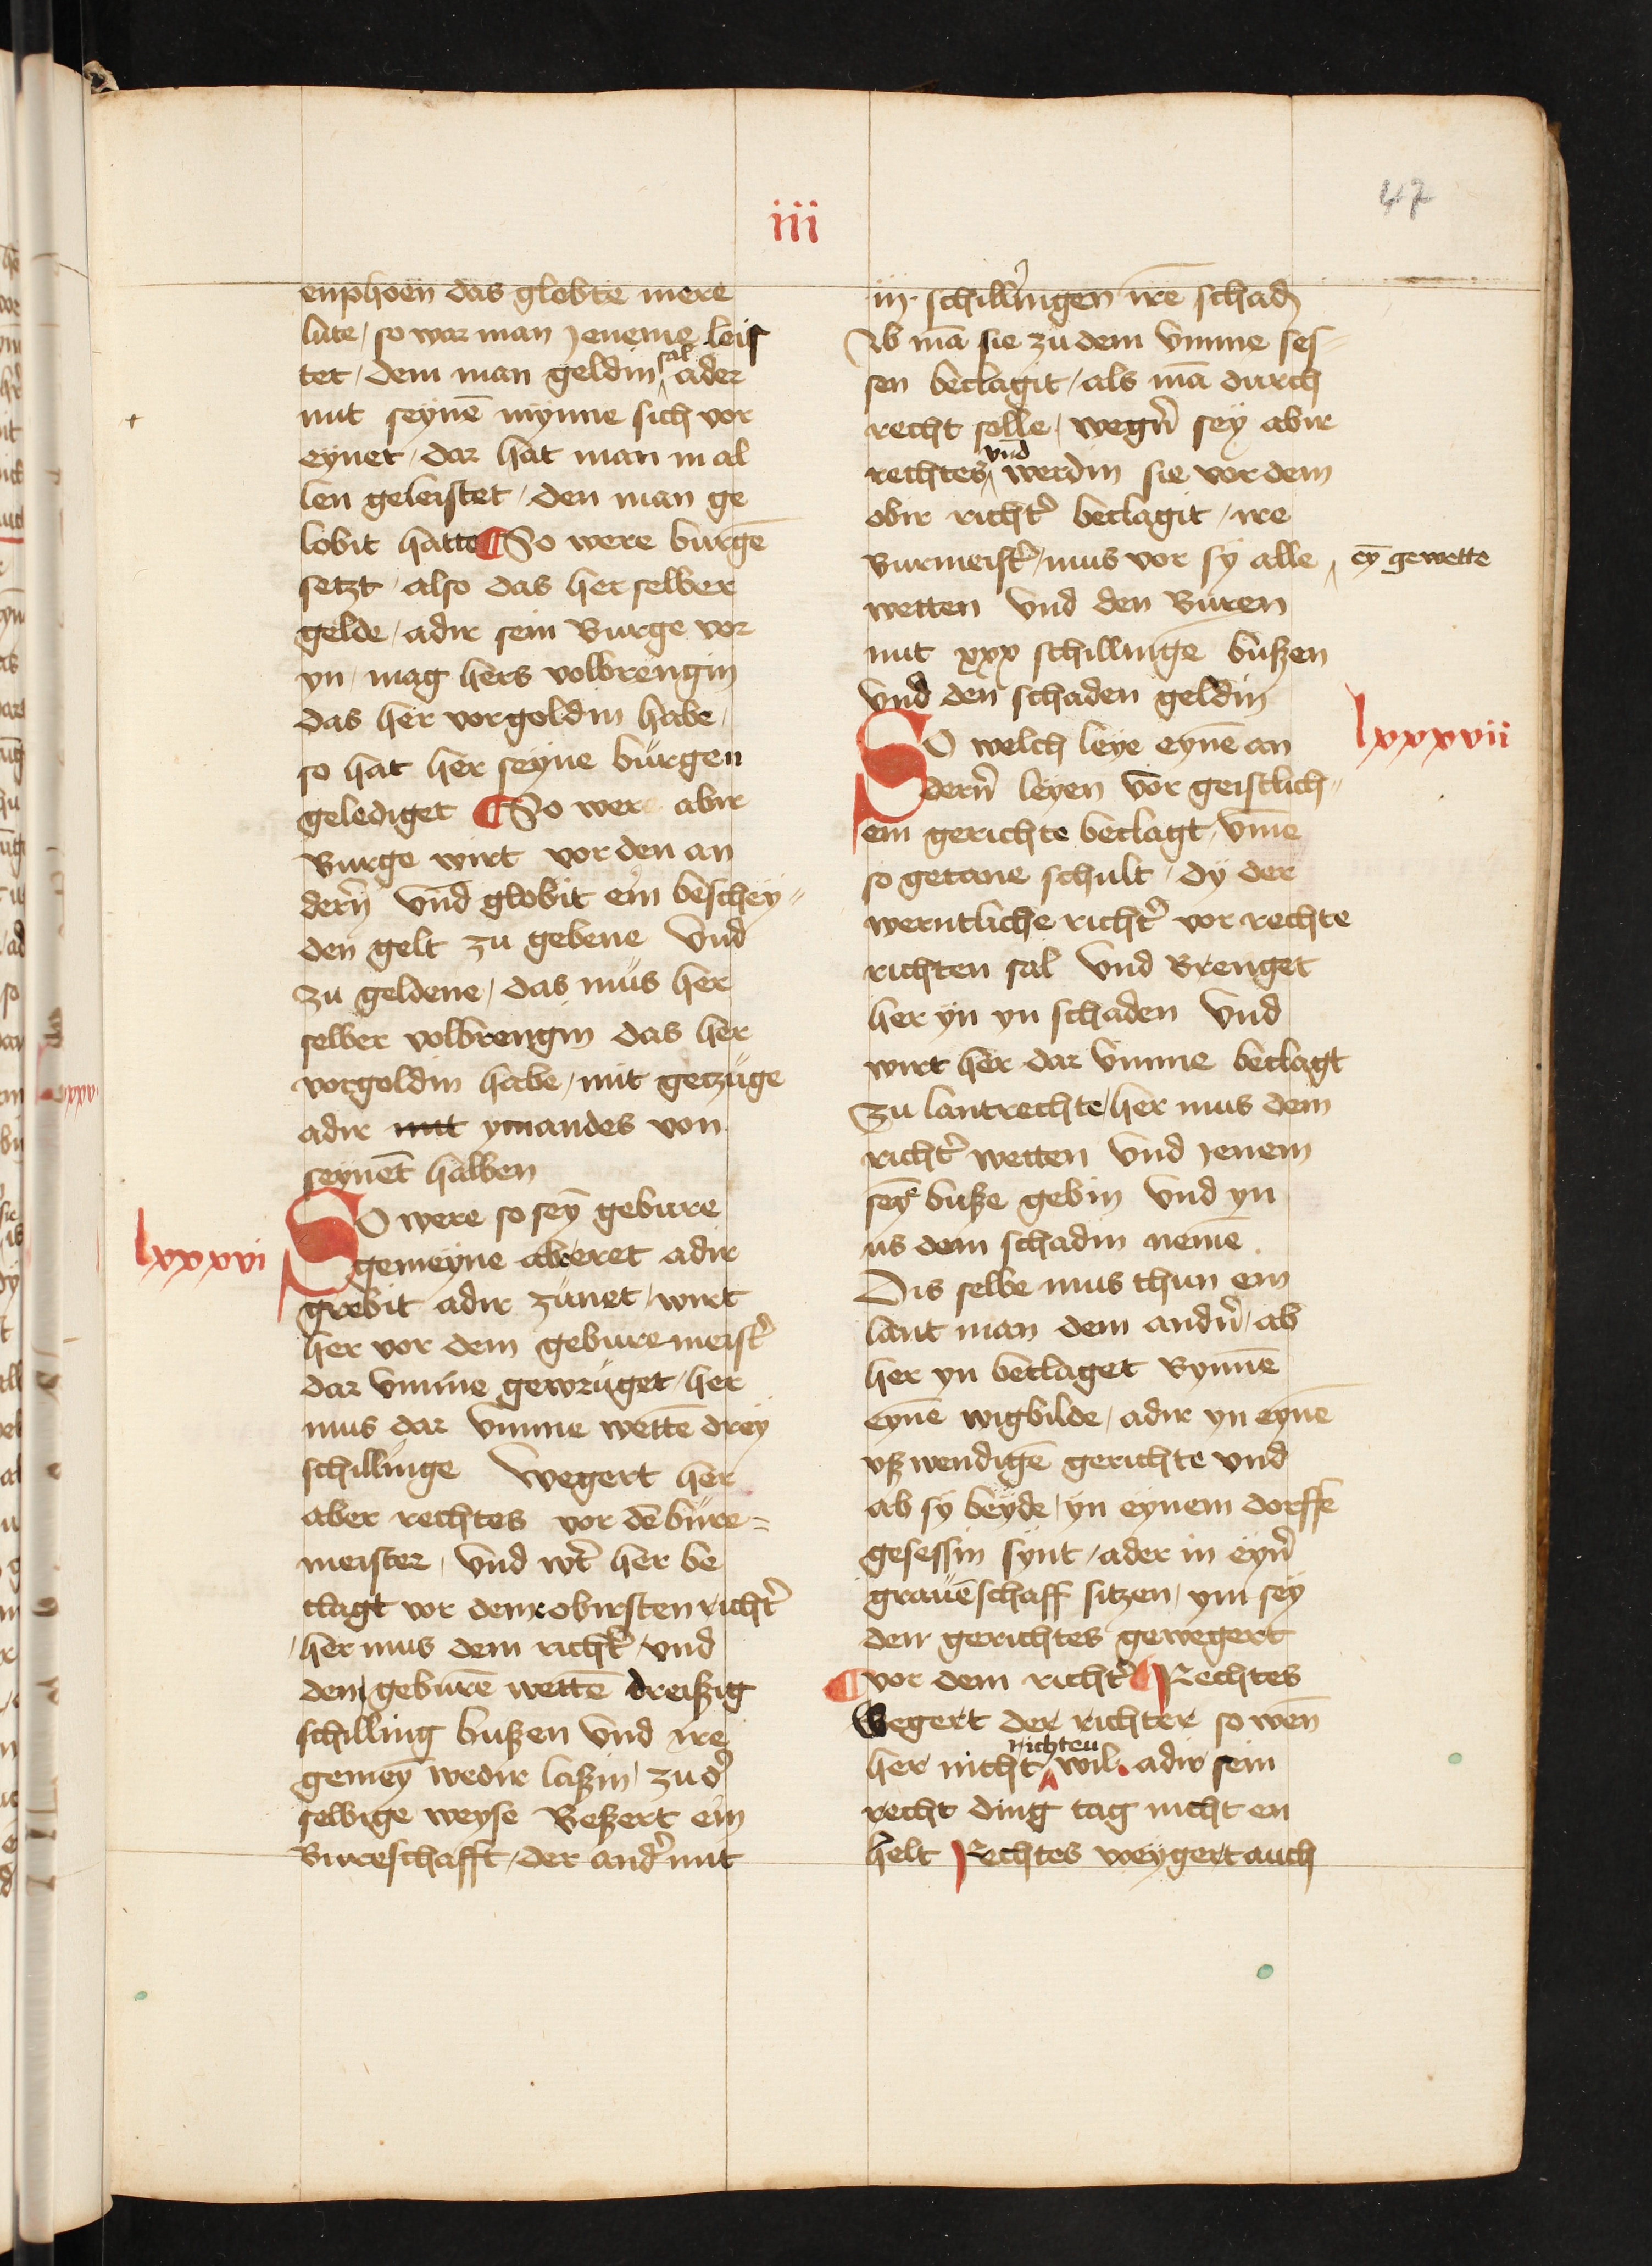 47
iii
enphoen das globte mere
lute / so wor man jeneme leis
tet / dem man geldin sal ader
mit seynē mynne sich vor
eynet / dar hat man in al
len geleistet / den man ge
lobit hatte ¶ So were burgē
setzt / also das her selber
gelde / adir sein Burge vor
yn / mag hers volbrengin
das her vorgoldin habe /
so hat her seyne burgen
gelediget ¶ So wer abir
Burge wirt vor den an
dern̄ vnd globit ein beschey=
den gelt zu gebene vnd
zu geldene / das mus her
selber volbrengin das her
vorgoldin habe / mit getzuge
adir mit ymandes von
seynet̄ halben
lxxxvi
So were so seȳ gebure
gemeyne aberet adir
grebit adir zunet / wirt
her vor dem geburemeist̉
dar vmme gewruget / her
mus dar vmme wettē drey
schillinge Wegert her
aber rechtes vor dē bure=
meister / vnd wt̉ her be
clagt vor deme obirsten richt̉
/ her mus dem richt̉ / vnd
dem geburē wettē dreißig
schilling bußen vnd ire
gemey̅ wedir laßin / zu d̉
selbige weyse Beßert ein
Bureschafft / der and̉ mit
iij · schillingen irē schadn̄
Ab mā sie zu dem vmme ses=
sen beclagit / als mā durch
recht solle / wegn̉ sey abir
rechtes vnd werdin sie vor dem
obir richt̉ beclagit / ire
Burmeist̉ / mus vor sy alle ey̅ gewette
wetten vnd den Buren
mit xxx schillinge bußen
vnd den schaden geldin
lxxxvii
So welch leye eynē an
dern̉ leyen vor geistlich=
em gerichte beclagt / vm̄e
so getane schult / dy der
werntliche richt̉ vor rechte
richten sal vnd Brenget
her yn yn schaden vnd
wirt her dar vmme beclagt
zu lantrechte / her mus dem
richt̉ wetten vnd jenem
sey̅e buße gebin vnd yn
us dem schadin nemē
Dis selbe mus thun ein
lant man dem andn̉ / ab
her yn beclaget Bynnē
eynē wigbilde / adir yn eynē
vßwendigē gerichte vnd
ab sy beyde / yn eynem dorffe
gesessin synt / ader in eyn̉
grauēschaff sitzen / ym sey
den gerichtes gewegert
¶ vor dem richt̉ ¶ Rechtes
Wegert der richter so wen̄
her nicht richten wil . adir sein
recht ding tag nicht en
helt Rechtes weygert auch